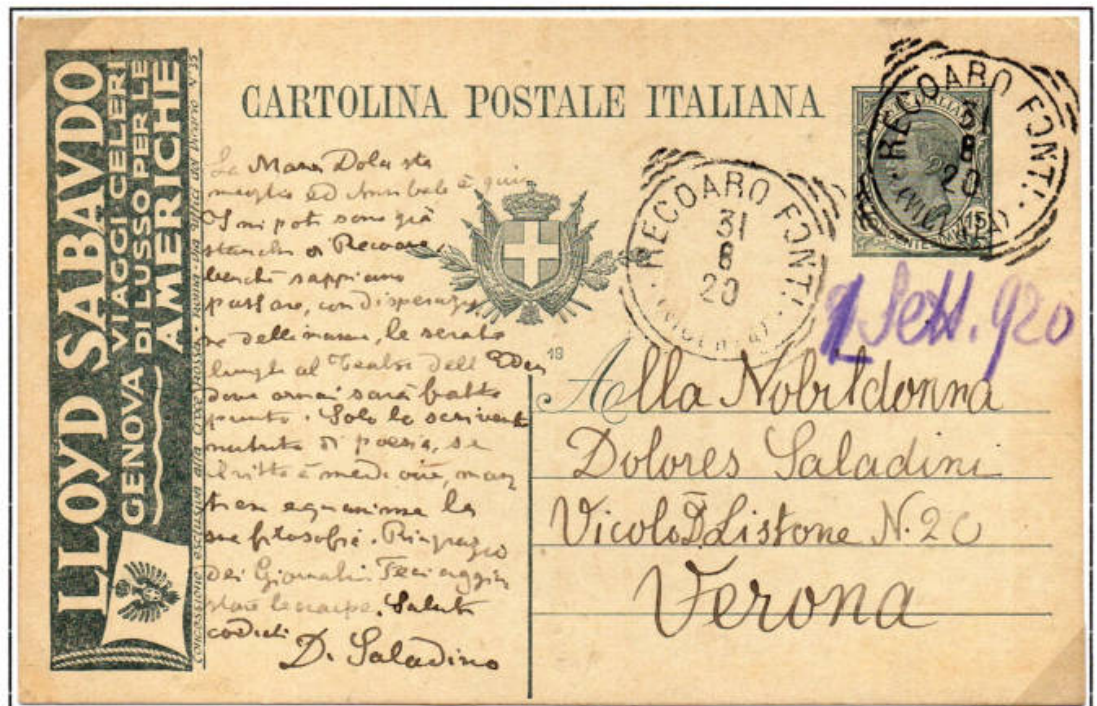 LLOYD SABAVDO
GENOVA VIAGGI CELERI
DI LUSSO PER LE
AMERICHE
CARTOLINA POSTALE ITALIANA
RECOARO FONTI
31
8
20
(VICENZA)
RECOARO FONTI
31
8
20
(VICENZA)
15
2 Sett. 920
La Mara Dola sta
meglio ed Annibale è qui
I nipoti sono già
stanchi di Recoaro,
benchè sappiano
passare, con
le serate
lunghe al Teatro dell Eden
dove ormai sarà fatto
punto. Solo lo scrivente
nutrito di poesia, se
diritto è
tien la
sua filosofia. Ringrazio
dei Giornali. Feci aggiu
stare le scarpe. Saluti
cordiali
D. Saladino
19
Alla Nobildonna
Dolores Saladini
Vicolo Listone N. 20
Verona